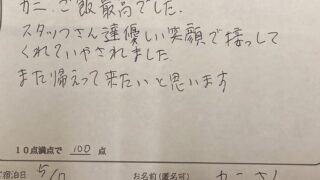 カニ、ご飯最高でした。
スタッフさん達優しい笑顔で接っして
くれていやされました。
また帰えって来たいと思います
10点満点で 100 点
宿泊日 5/17 お名前(匿名可)